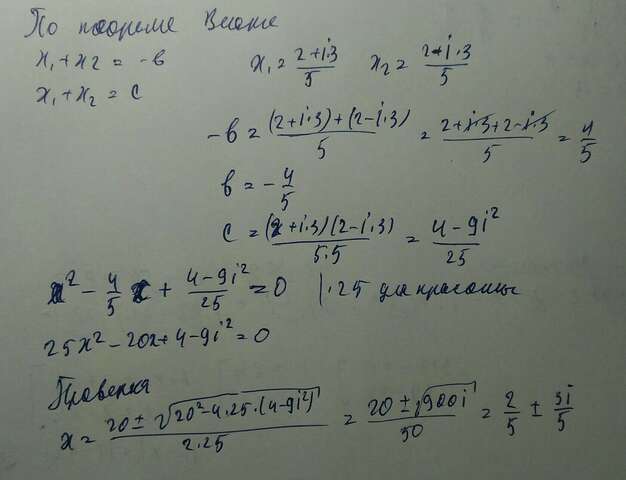 По теореме Виета
x₁+x₂ = -в x₁ = (2+i·3)/5 x₂ = (2-i·3)/5
x₁+x₂ = c
-в = ((2+i·3)+(2-i·3))/5 = (2+i·3+2-i·3)/5 = 4/5
в = -4/5
c = ((2+i·3)(2-i·3))/(5·5) = (4-9i²)/25
x² - 4/5 x + (4-9i²)/25 = 0 |·25 для красоты
25x² - 20x + 4 - 9i² = 0
Проверка
x = (20 ± √(20²-4·25·(4-9i²)))/(2·25) = (20 ± √(900i))/50 = 2/5 ± 3i/5